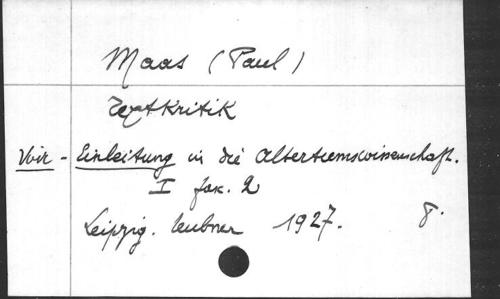 Maas (Paul)
Textkritik
Voir - Einleitung in die Altertumswissenschaft.
I fax. 2
Leipzig. Teubner 1927. 8.